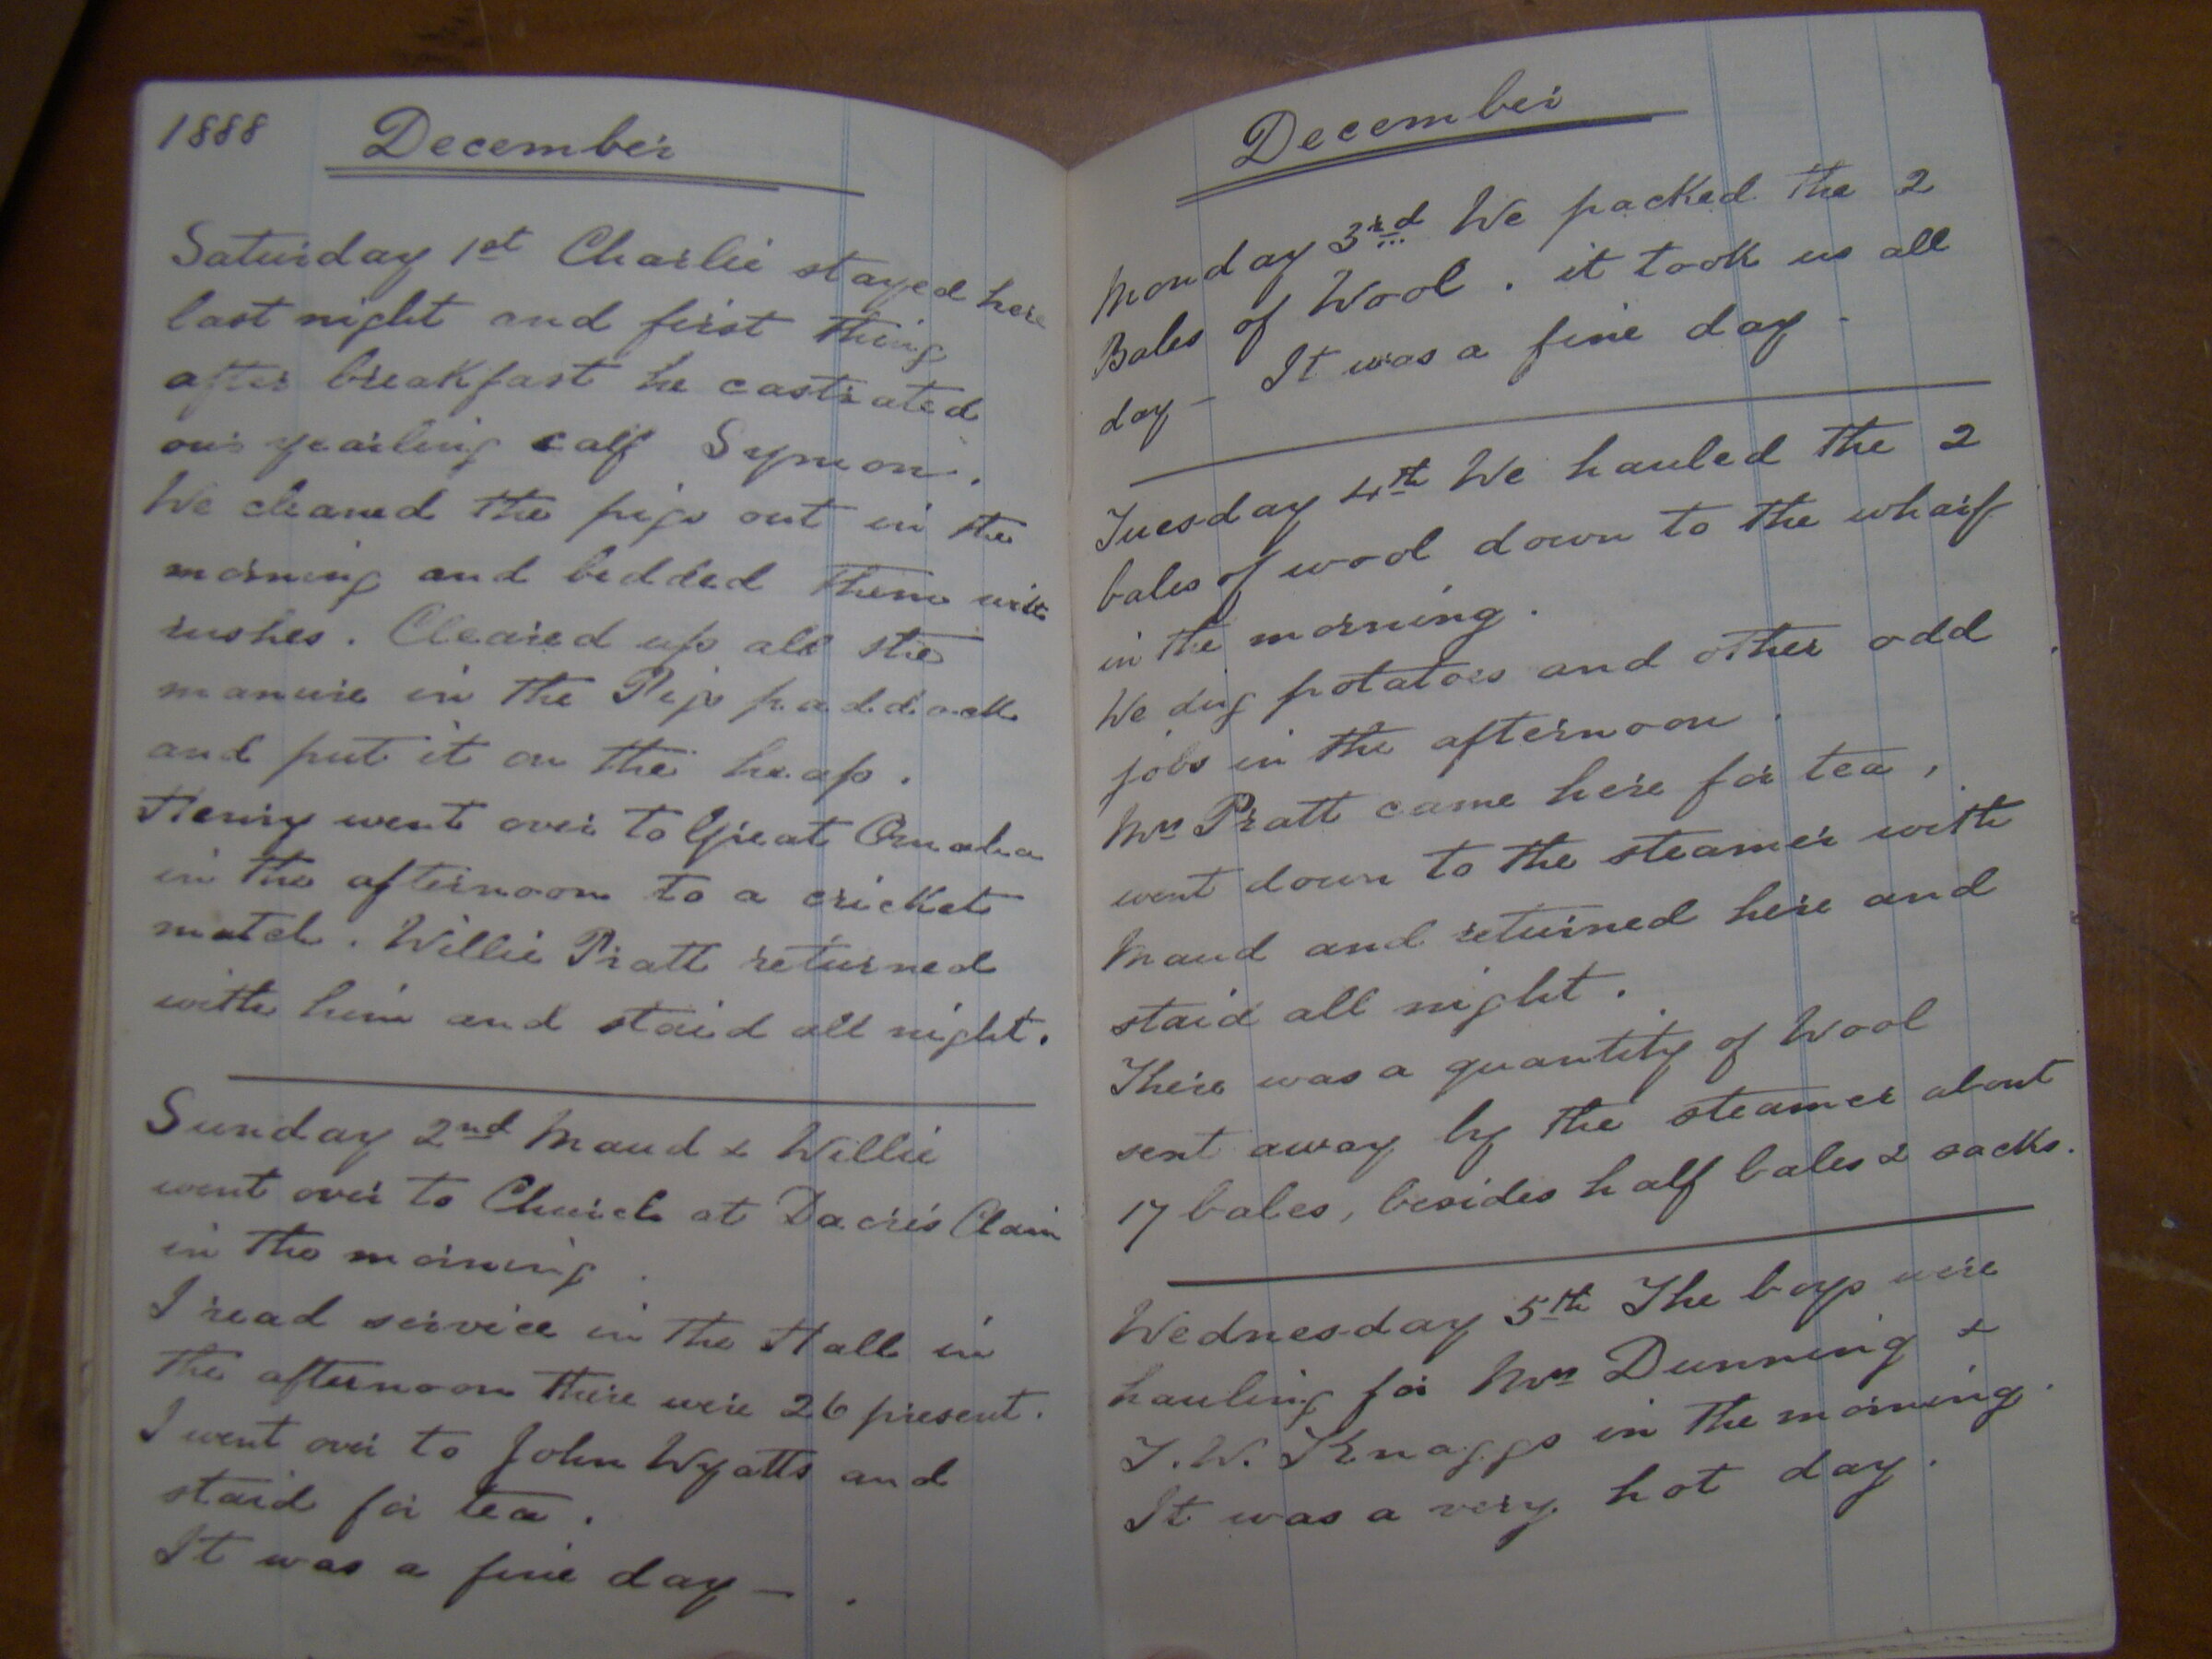 1888 December
Saturday 1st Charlie stayed here
last night and first thing
after breakfast he castrated
our yearling calf Symon.
We cleaned the pigs out in the
morning and bedded them with
rushes. Cleared up all the
manure in the Pigs paddock
and put it on the heap.
Henry went over to Great Omaha
in the afternoon to a cricket
match. Willie Pratt returned
with him and staid all night.
Sunday 2nd Maud & Willie
went over to Church at Dacre's Claim
in the morning.
I read service in the Hall in
the afternoon there were 26 present.
I went over to John Wyatts and
staid for tea.
It was a fine day — .
December
Monday 3rd We packed the 2
Bales of Wool. it took us all
day — It was a fine day.
Tuesday 4th We hauled the 2
bales of wool down to the wharf
in the morning.
We dug potatoes and other odd
jobs in the afternoon.
Mrs Pratt came here for tea,
went down to the steamer with
Maud and returned here and
staid all night.
There was a quantity of Wool
sent away by the steamer about
17 bales, besides half bales & sacks.
Wednesday 5th The boys were
hauling for Mrs Dunning &
T. W. Knaggs in the morning.
It was a very hot day.